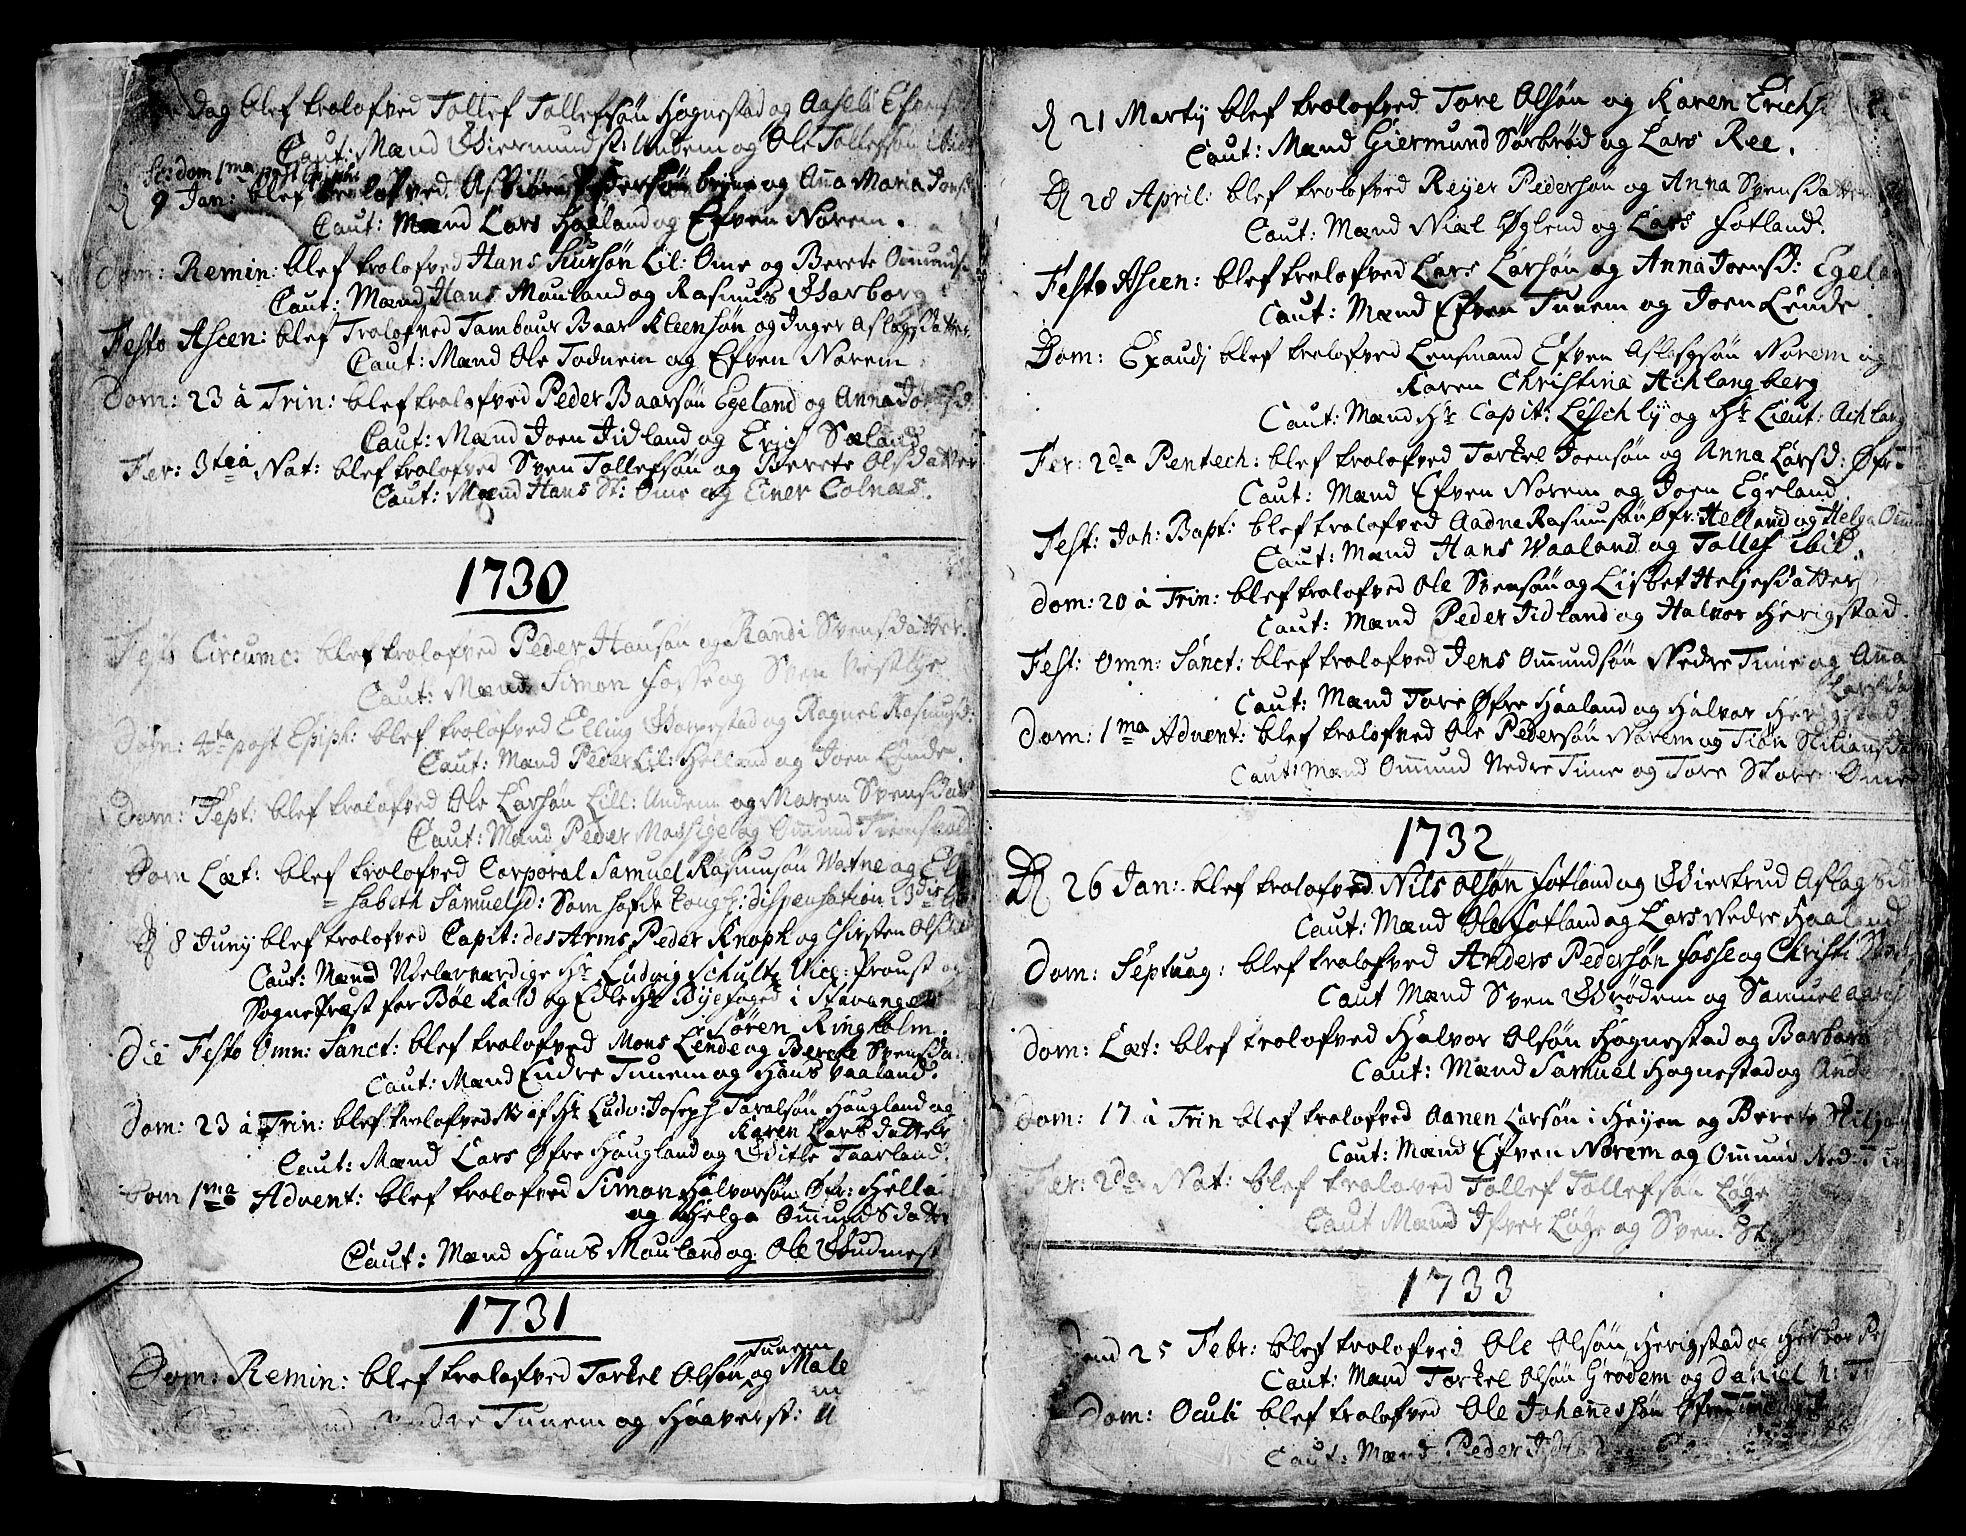 Dag blef trolofved Tollef Tollefsøn Hognestad og Aaseli Efvens
Caut: Mænd Giermund Undem og Ole Tollefsøn ibid
dom 1ma post Epiph:
d 9 Jan: blef trolofved Asbiörn Pedersøn bryne og Anna Maria Jons
Caut: Mænd Lars Haaland og Efven Norem.
Dom: Remin: blef trolofved Hans Siursøn Lil: Ome og Berete Omunds
Caut: Mænd Hans Mauland og Rasmus Garborg
Festo Ascen: blef Trolofved Tambour Baar Kleensøn og Inger Aslagsdatter
Caut: Mænd Ole Todnem og Efven Norem
Dom: 23 à Trin: blef trolofved Peder Baarsøn Egeland og Anna
Caut: Mænd Joen Jidland og Erich Sæland
Fer: 3tia Nat: blef trolofved Sven Tollefsøn og Berete Olsdatter
Caut: Mænd Hans St: Ome og Einer Tolnæs.
1730
Festo Circumc: blef trolofved Peder Hansøn og Randi Svensdatter.
Caut: Mænd Simon Fosse og Sven Vestlye
Dom: 4ta post Epiph: blef trolofved Elling Gorrestad og Ragnel Rasmusd:
Caut: Mænd Peder Lil: Helland og Joen Lende.
Dom: Sept: blef trolofved Ole Larsøn Lill: Undem og Maren Svensdat
Caut: Mænd Peder Mossige og Omund
Dom Læt: blef trolofved Corporal Samuel Rasmusøn Watne og El
= sabeth Samuelsd: Som hafde Kong: dispensation
d 8 Junij blef trolofved Capit: des Arms Peder Knoph og Chirsten Ols
Caut: Mænd Velærværdige Hr Ludvig Schultz Vice: Proust og
Sogneprest for Bøe Kald og Edle Hr Byefoged i Stavanger
Søren Ringholm.
Die Festo Omn: Sanct: blef trolofved Mons Lende og Berete Svensda:
Caut: Mænd Endre Tunem og Hans Vaaland.
Dom: 23 à Trin: blef trolofvede af Hr Ludv: Joseph Toralsøn Haugland og
Karen Larsdatter
Caut: Mænd Lars Øfre Haugland og Gitle Taarland.
Dom 1ma Advent: blef trolofved Simon Halvorsøn Øfr: Hella
og Helga Omundsdatt
Caut: Mænd Hans Mauland og Ole Gudmest
1731
Tunem
Dom: Remin: blef trolofved Torkel Olsøn og Male
Endre Tunem og Haaverst:
d 21 Martij blef trolofved Tore Olsøn og Karen Erichs
Caut: Mænd Giermund Sørbrød og Lars Ree.
D 28 April: blef trolofved Reyer Pedersøn og Anna Svensdatter
Caut: Mænd Niæl Øglend og Lars Fotland.
Festo Ascen: blef trolofved Lars Larsøn og Anna Joensd: Egelan
Caut: Mænd Efven Tunem og Joen Lende.
Dom: Exaudj blef trolofved Lensmand Efven Aslagsøn Norem og
Karen Christina Achlangberg
Caut: Mænd Hr Capit: Leschly og Hr Lieut: Achlang
Fer: 2da Pentech: blef trolofved Torkel Joensøn og Anna Larsd: Øfr:
Caut: Mænd Efven Norem og Joen Egeland.
Fest: Joh: Bapt: blef trolofved Aadne Rasmusøn Øfr: Helland og Helga Omun
Caut: Mænd Hans Waaland og Tollef ibid.
Dom: 20 à Trin: blef trolofved Ole Svensøn og Lisbet Heljesdatter
Caut: Mænd Peder Jidland og Halvor Herigstad.
Fest: Omn: Sanct: blef trolofved Jens Omundsøn Nedre Time og Anna
Larsda
Caut: Mænd Tore Øfre Haaland og Halvor Herigstad
Dom: 1ma Advent: blef trolofved Ole Pedersøn Norem og Tiøn Stiliansda
Caut: Mænd Omund Nedre Time og Tore Store Ome
1732
D 26 Jan: blef trolofved Nils Olsøn Fotland og Giertrud Aslagsd
Caut: Mænd Ole Fotland og Lars Nedre Haaland
Dom: Septuag: blef trolofved Anders Pedersøn Fosse og Christi
Caut Mænd Sven Grødem og Samuel
Dom: Læt: blef trolofved Halvor Olsøn Hognestad og Barbara
Caut: Mænd Samuel Hognestad og Ande
Dom: 17 à Trin blef trolofved Aanen Larsøn i Heyen og Berete Stilja
Caut: Mænd Efven Norem og Omund Ned: Ti
Fer: 2da Nat: blef troloved Tollef Tollefsøn Løge
Caut Mænd Ifver Løge og Sven. St
1733
25 Febr: blef trolofved Ole Olsøn Herigstad og
Caut: Mænd Torkel Olsøn Grødem og Daniel N: T
Dom: Oculi blef trolofved Ole Johannessøn Øfre Time
Caut: Mænd Peder